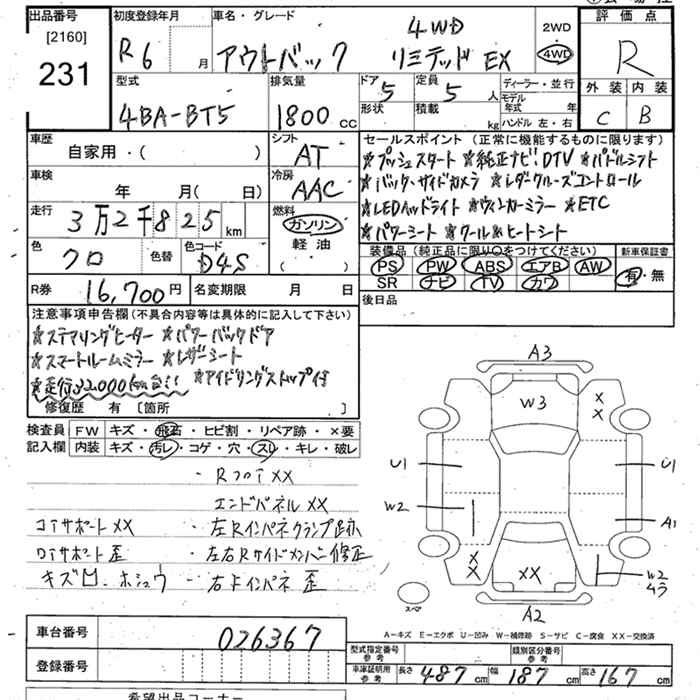 出品番号
[2160]
231
初度登録年月
R6 月
車名・グレード
アウトバック 4WD リミテッド EX
2WD
4WD
評価点
R
外装 内装
C B
型式
4BA-BT5
排気量
1800 cc
ドア
5
形状
定員
5 人
積載
kg
ディーラー・並行
モデル年式 年
ハンドル 左・右
車歴
自家用・( )
シフト
AT
車検
年 月( 日)
冷房
AAC
走行
3万2千825 km
燃料
ガソリン
軽油
( )
色
クロ
色替
色コード
D4S
R券
16,700円
名変期限 月 日
セールスポイント(正常に機能するものに限ります)
★プッシュスタート ★純正ナビ!DTV ★パドルシフト
★バック・サイドカメラ ★レーダークルーズコントロール
★LEDヘッドライト ★ウィンカーミラー ★ETC
★パワーシート ★クール&ヒートシート
装備品(純正品に限り○をつけてください)
PS PW ABS エアB AW
SR ナビ TV カワ
新車保証書
有・無
後日品
注意事項申告欄(不具合内容等は具体的に記入して下さい)
★ステアリングヒーター ★パワーバックドア
★スマートルームミラー ★レザーシート
★走行32,000km台!! ★アイドリングストップ付
修復歴 有 [箇所 ]
検査員記入欄
FW キズ・飛石・ヒビ割・リペア跡・×要
内装 キズ・汚レ・コゲ・穴・スレ・キレ・破レ
・RフロアXX
エンドパネルXX
コアサポートXX ・左Rインパネクランプ跡
ロアサポート歪 ・左右Rサイドメンバー修正
キズ凹、ホシュウ ・右Fインパネ歪
A3
W3
X
X
U1
U1
W2
A1
X
X
XX
W2
ムラ
スペア
A2
A-キズ E-エクボ U-凹み W-補修跡 S-サビ C-腐食 XX-交換済
車台番号
026367
登録番号
型式指定番号
参考
類別区分番号
参考
車庫証明用
参考
長さ 487 cm 幅 187 cm 高さ 167 cm
希望出品コーナー